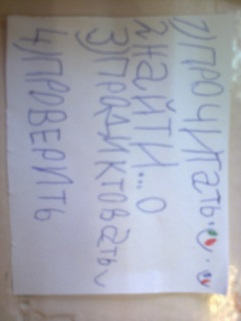 1) ПРОЧИТАТЬ
2) НАЙТИ... О
3) ПРОДИКТОВАТЬ
4) ПРОВЕРИТЬ